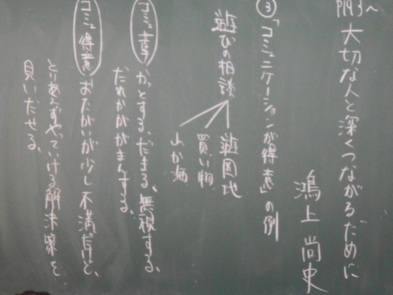 大切な人と深くつながるために
鴻上尚史
③「コミュニケーションが得意」の例
遊びの相談
遊園地
買い物
山か海
コミュ苦手
カッとする、だまる、無視する、
だれかががまんする。
コミュ得意
おたがいが少し不満だけど、
とりあえずやっていける解決案を
見いだせる。